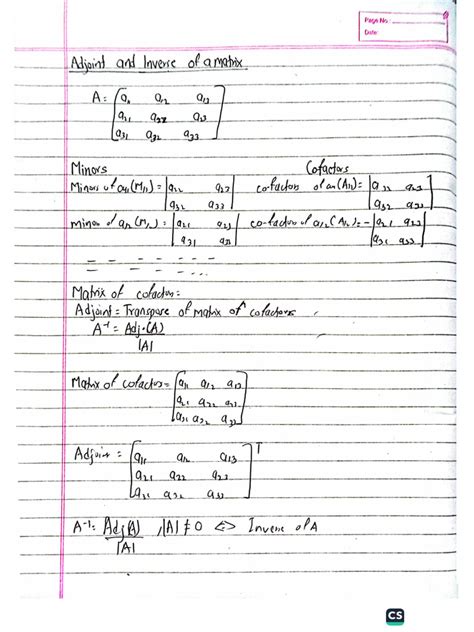 Page No:
Date:
Adjoint and Inverse of a matrix
A = [a11 a12 a13
a21 a22 a23
a31 a32 a33]
Minors Cofactors
Minors of a11 (M11) = |a22 a23 cofactors of a11 (A11) = |a22 a23
a32 a33| a32 a33|
minor of a12 (M12) = |a21 a23 co-factor of a12 (A12) = - |a21 a23
a31 a33| a31 a33|
Matrix of cofactors:
Adjoint = Transpose of matrix of cofactors
A⁻¹ = Adj.(A)
|A|
Matrix of cofactors = [a11 a12 a13
a21 a22 a23
a31 a32 a33]
Adjoint = [a11 a12 a13 ]T
a21 a22 a23
a31 a32 a33
A⁻¹ = Adj(A) , |A| ≠ 0 ⇔ Inverse of A
|A|
CS